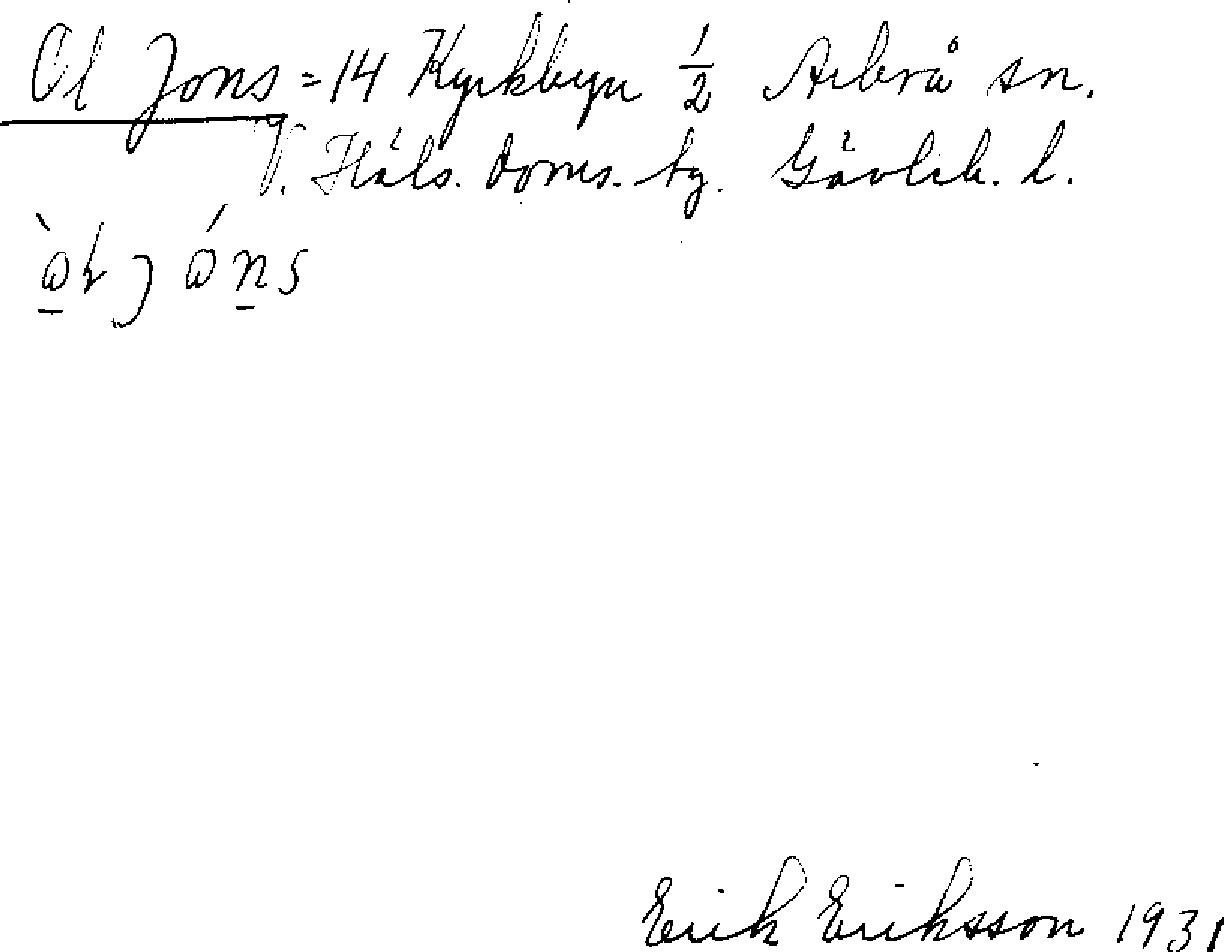 Ol Jons = 14 Kyrkbyn 1/2 Arbrå sn.
V. Häls. doms. tg. Gävleb. l.
Erik Eriksson 1931